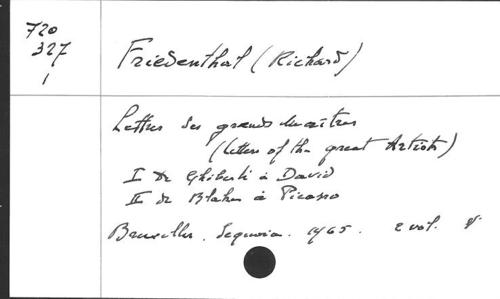 720
327
1
Friedenthal (Richard)
Lettres des grands maîtres
(Letters of the great Artists)
I De Ghiberti à David
II de Blake à Picasso
Bruxelles. Sequoia. 1965. 2 vol.